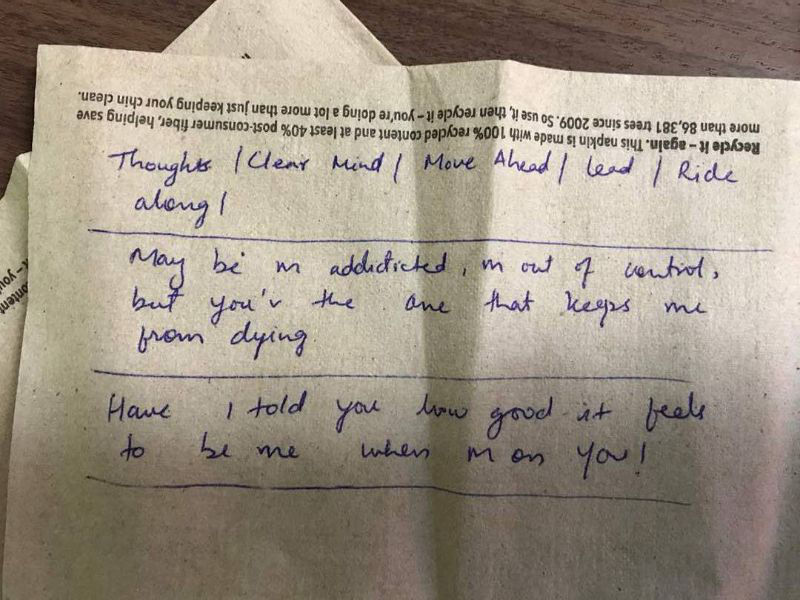 Recycle it – again. This napkin is made with 100% recycled content and at least 40% post-consumer fiber, helping save
more than 86,381 trees since 2009. So use it, then recycle it – you're doing a lot more than just keeping your chin clean.
Thoughts / Clear Mind / Move Ahead / Lead / Ride
along /
May be m addicticted, m out of control,
but you'v the one that keeps me
from dying
Have I told you how good it feels
to be me when m on you!
ontent
it – you